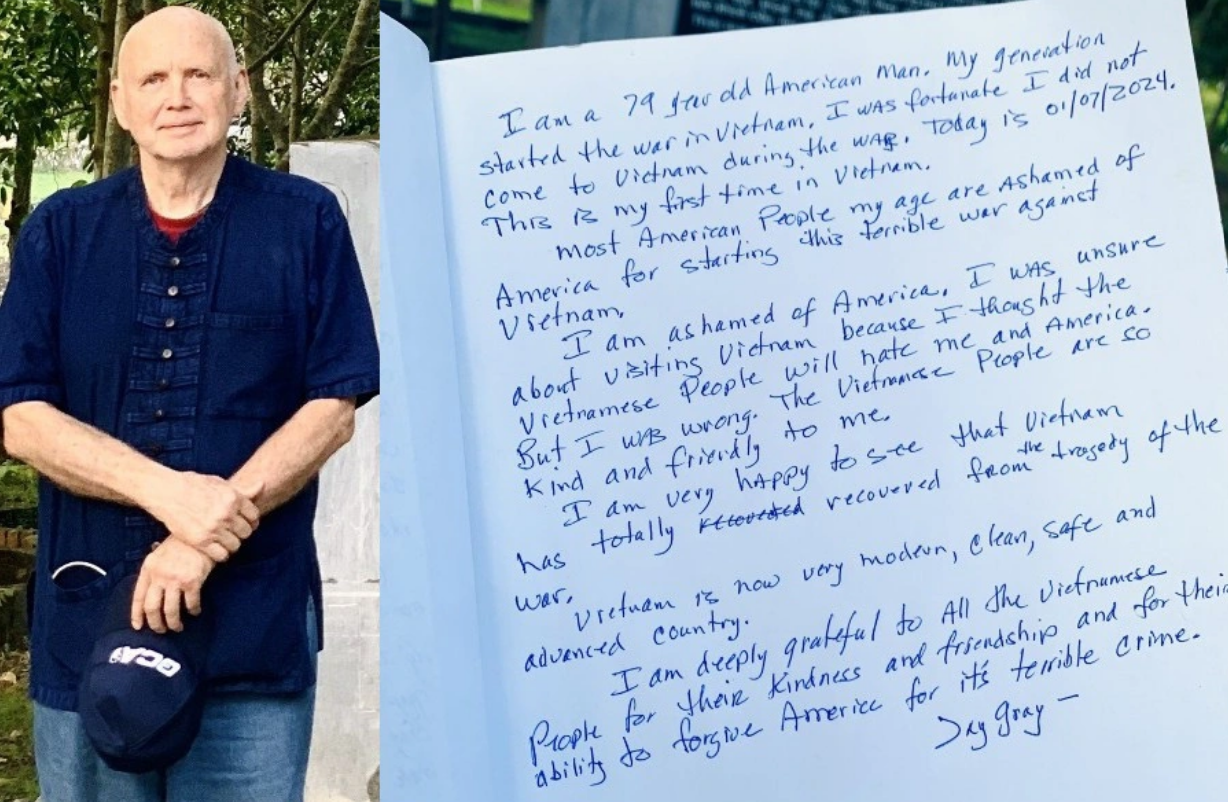 I am a 79 year old American Man. My generation
started the war in Vietnam. I was fortunate I did not
come to Vietnam during the war. Today is 01/07/2024.
This is my first time in Vietnam.
most American People my age are Ashamed of
America for starting this terrible war against
Vietnam.
I am ashamed of America. I was unsure
about visiting Vietnam because I thought the
Vietnamese People will hate me and America.
But I was wrong. The Vietnamese People are so
Kind and friendly to me.
I am very happy to see that Vietnam
has totally recovered from the tragedy of the
war.
Vietnam is now very modern, clean, safe and
advanced country.
I am deeply grateful to All the Vietnamese
People for their Kindness and friendship and for their
ability to forgive America for it's terrible crime.
Jay Gray
GCA